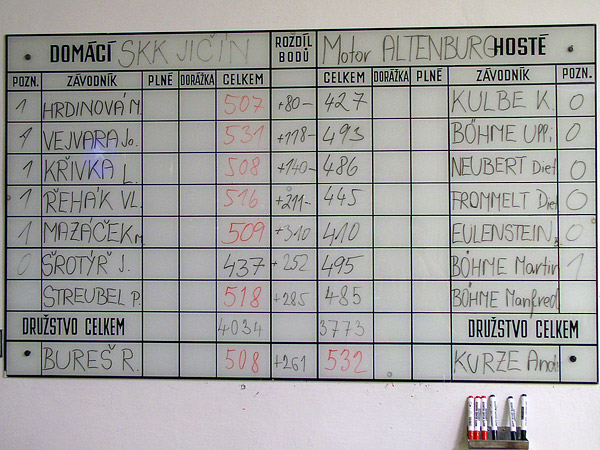 DOMÁCÍ SKK JIČÍN ROZDÍL BODŮ Motor ALTENBURG HOSTÉ
POZN. ZÁVODNÍK PLNÉ DORÁŽKA CELKEM CELKEM DORÁŽKA PLNÉ ZÁVODNÍK POZN.
1 HRDINOVÁ M. 507 +80- 427 KULBE K. 0
1 VEJVARA Jo. 531 +118- 493 BÖHME UPP. 0
1 KŘIVKA L. 508 +140- 486 NEUBERT Diet 0
1 ŘEHÁK VL. 516 +211- 445 FROMMELT Die 0
1 MAZÁČEK M. 509 +310 410 EULENSTEIN 0
0 ŠROTÝŘ J. 437 +252 495 BÖHME Martin 1
STREUBEL P. 518 +285 485 BÖHME Manfred
DRUŽSTVO CELKEM 4034 3773 DRUŽSTVO CELKEM
BUREŠ R. 508 +261 532 KURZE And